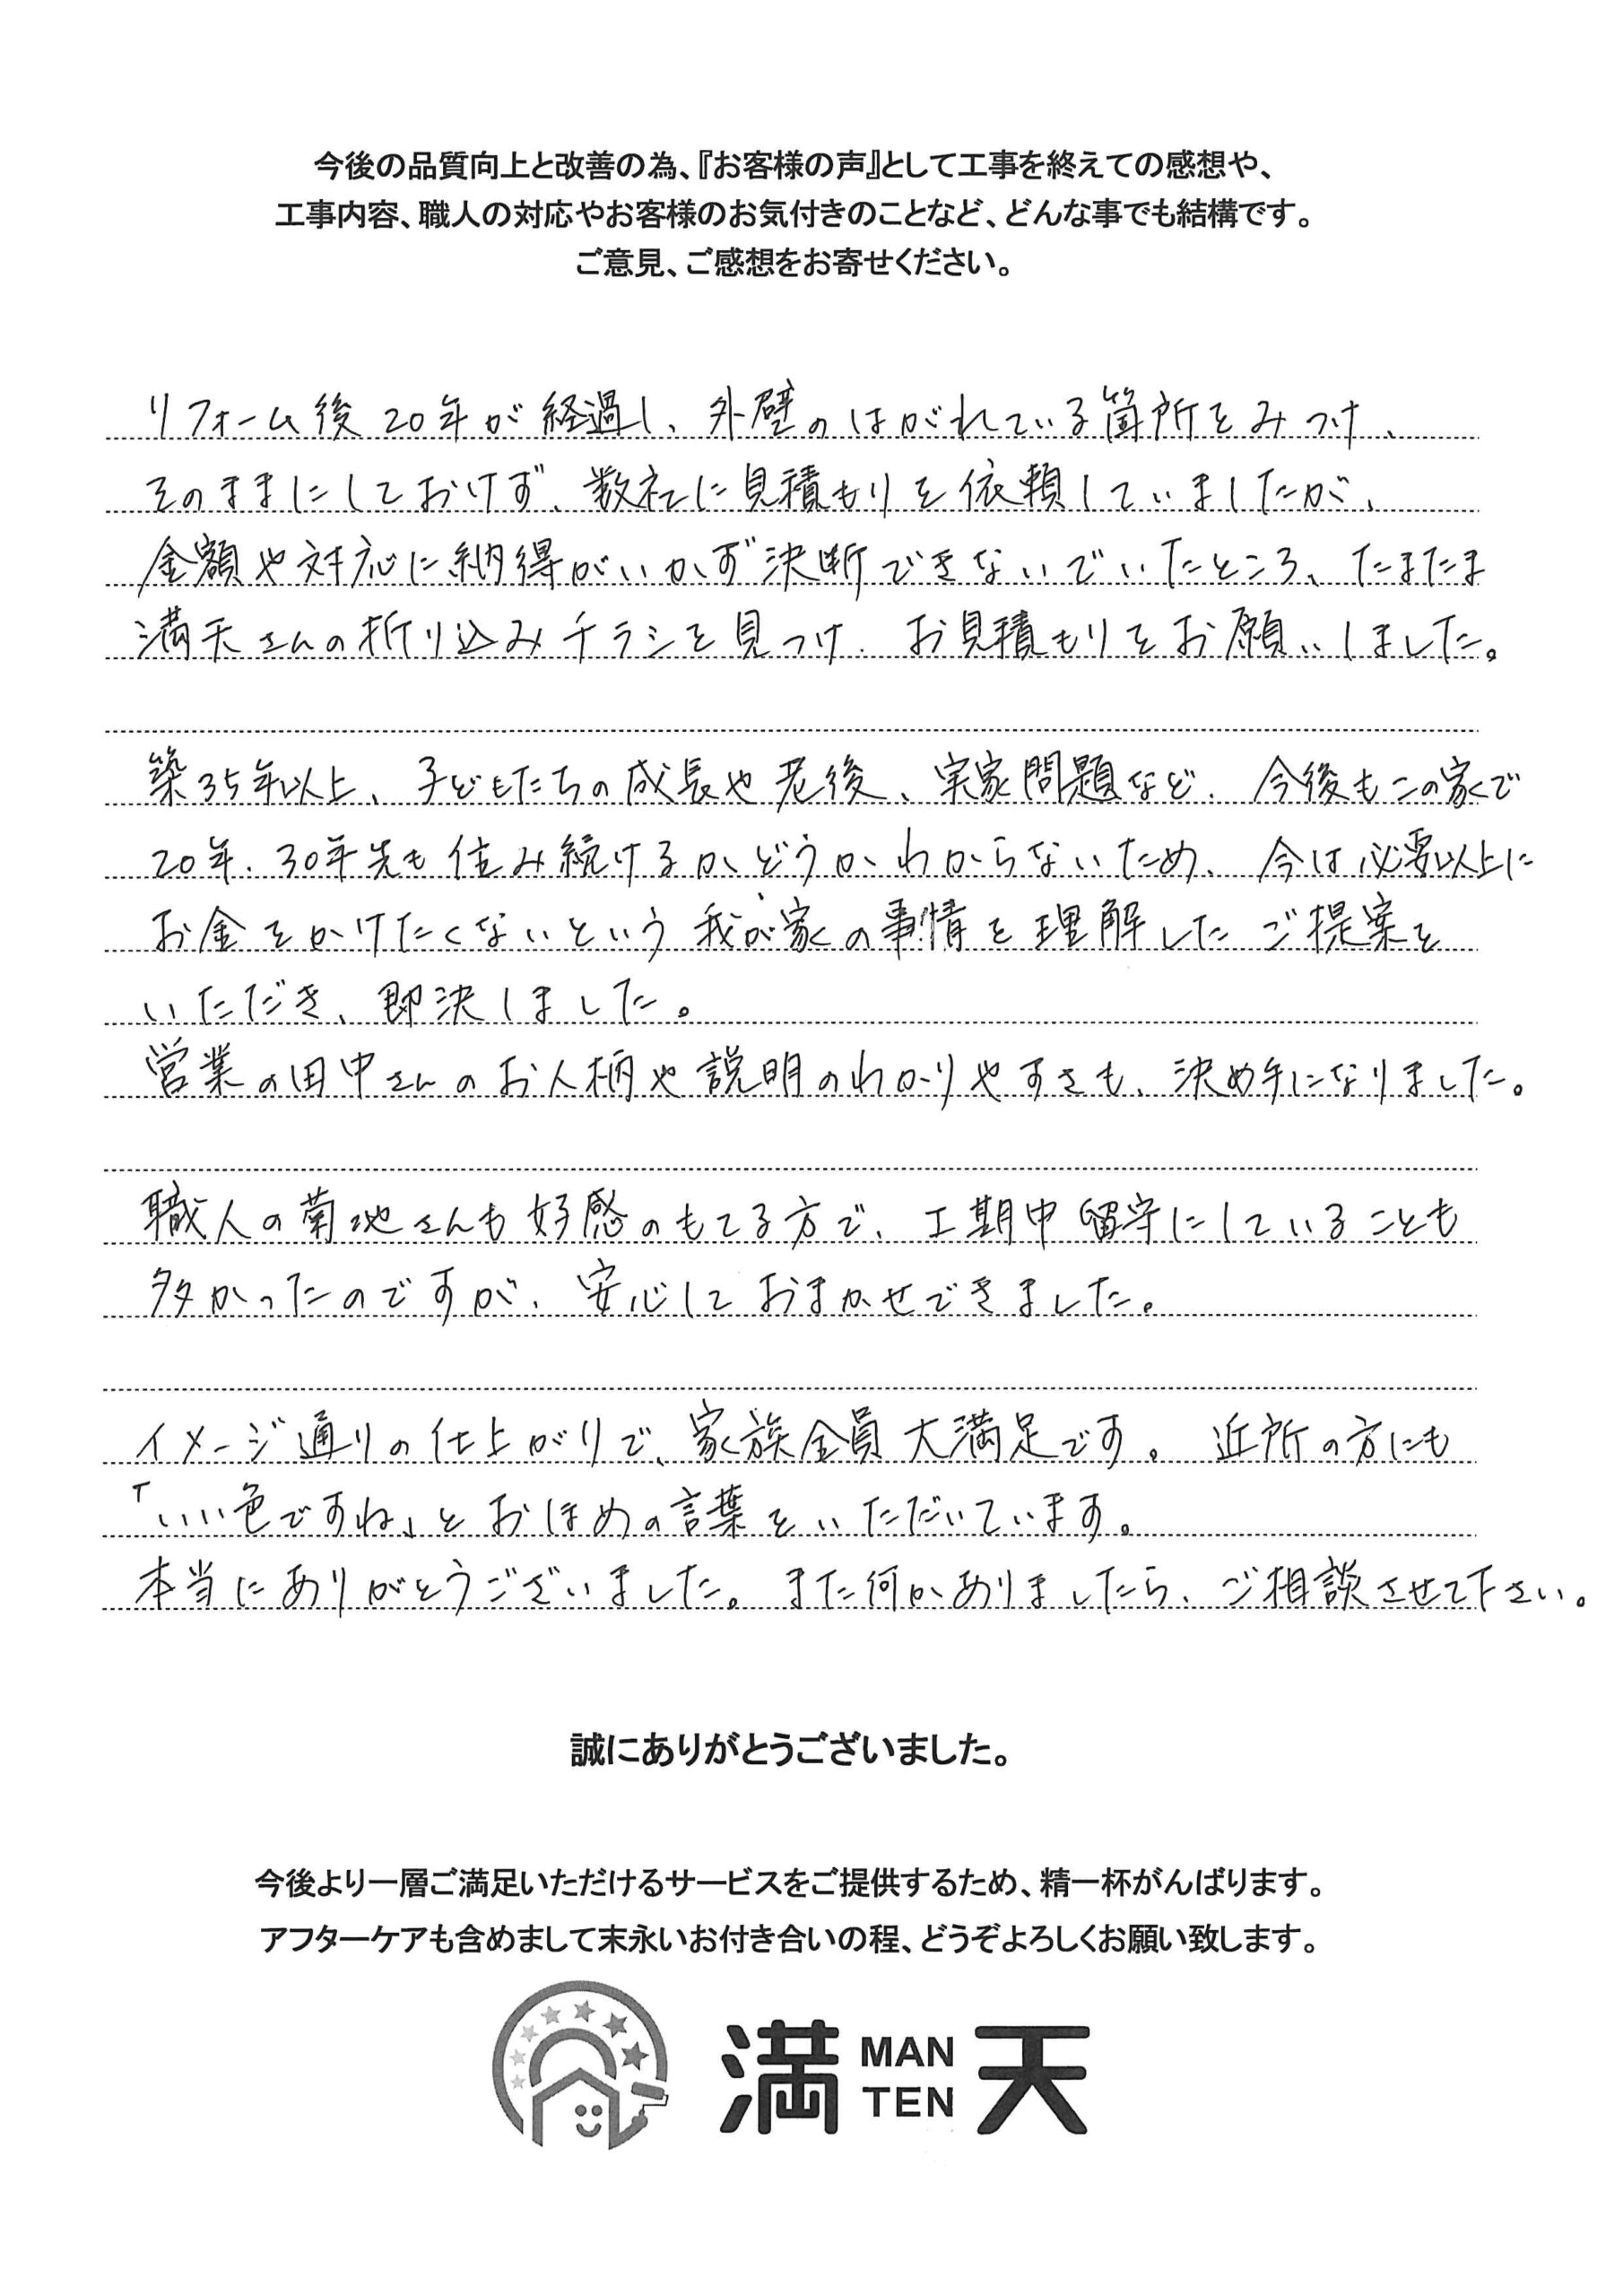 今後の品質向上と改善の為、『お客様の声』として工事を終えての感想や、
工事内容、職人の対応やお客様のお気付きのことなど、どんな事でも結構です。
ご意見、ご感想をお寄せください。
リフォーム後20年が経過し、外壁のはがれている箇所をみつけ、
そのままにしておけず、数社に見積もりを依頼していましたが、
金額や対応に納得がいかず決断できないでいたところ、たまたま
満天さんの折り込みチラシを見つけ、お見積もりをお願いしました。
築35年以上、子どもたちの成長や老後、実家問題など、今後もこの家で
20年、30年先も住み続けるかどうかわからないため、今は必要以上に
お金をかけたくないという我が家の事情を理解したご提案を
いただき、即決しました。
営業の田中さんのお人柄や説明のわかりやすさも、決め手になりました。
職人の菊池さんも好感のもてる方で、工期中留守にしていることも
多かったのですが、安心しておまかせできました。
イメージ通りの仕上がりで、家族全員大満足です。近所の方にも
「いい色ですね」とおほめの言葉をいただいています。
本当にありがとうございました。また何かありましたら、ご相談させて下さい。
誠にありがとうございました。
今後より一層ご満足いただけるサービスをご提供するため、精一杯がんばります。
アフターケアも含めまして末永いお付き合いの程、どうぞよろしくお願い致します。
満 MAN TEN 天